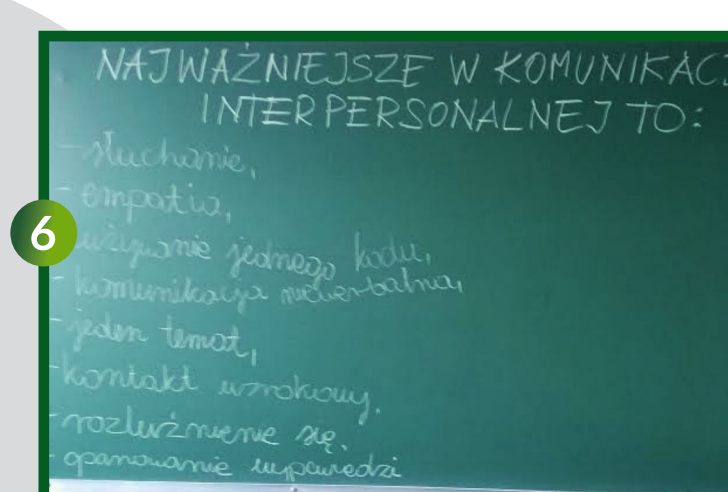 NAJWAŻNIEJSZE W KOMUNIKAC
INTERPERSONALNEJ TO:
- słuchanie,
- empatia,
6
używanie jednego kodu,
- komunikacja niewerbalna,
- jeden temat,
- kontakt wzrokowy.
- rozluźnienie się.
- opanowanie wypowiedzi